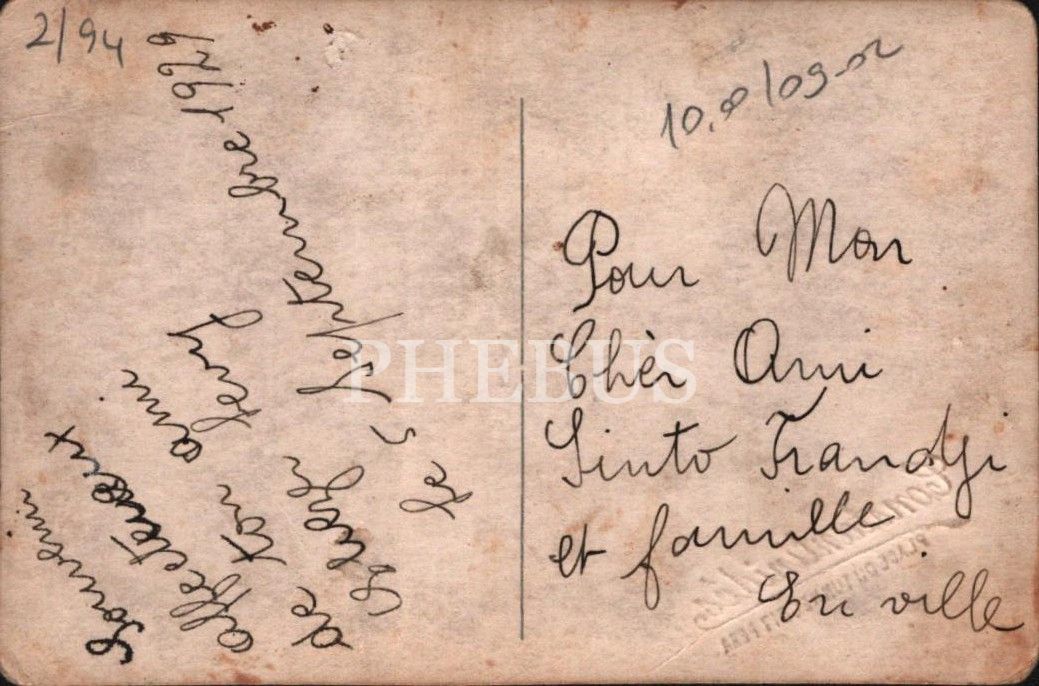 2/94
Souvenir
affectueux
de ton ami
le 5 Septembre 1929
10,00/09-02
Pour Mon
Chèr Ami
Sinto Frandji
et famille
En ville
PHEBUS